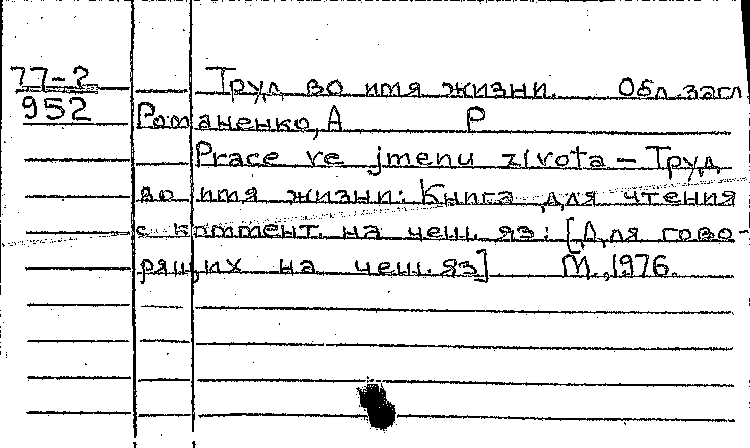 77-2 Труд во имя жизни. Обл.загл
952
Романенко, А Р
Prace ve jmenu zivota – Труд
во имя жизни: Книга для чтения
с коммент. на чеш. яз: [Для гово-
рящих на чеш. яз] М., 1976.